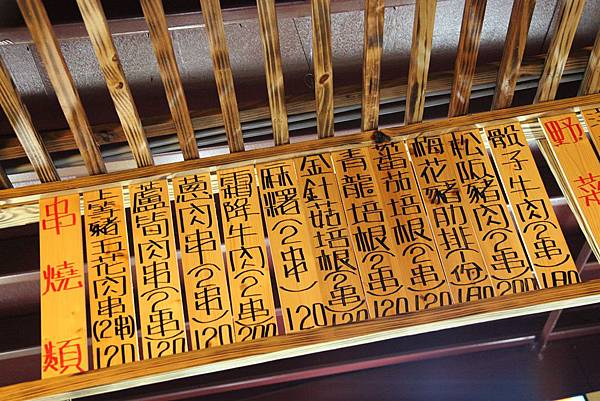 串燒類
豬五花肉串(2串)120
蘆筍肉串(2串)120
蔥肉串(2串)120
霜降牛肉(2串)200
麻糬(2串)120
金針菇培根(2串)120
青龍培根(2串)120
蕃茄培根(2串)120
梅花豬肋排(份)180
松阪豬肉(2串)200
骰子牛肉(2串)180
野菜